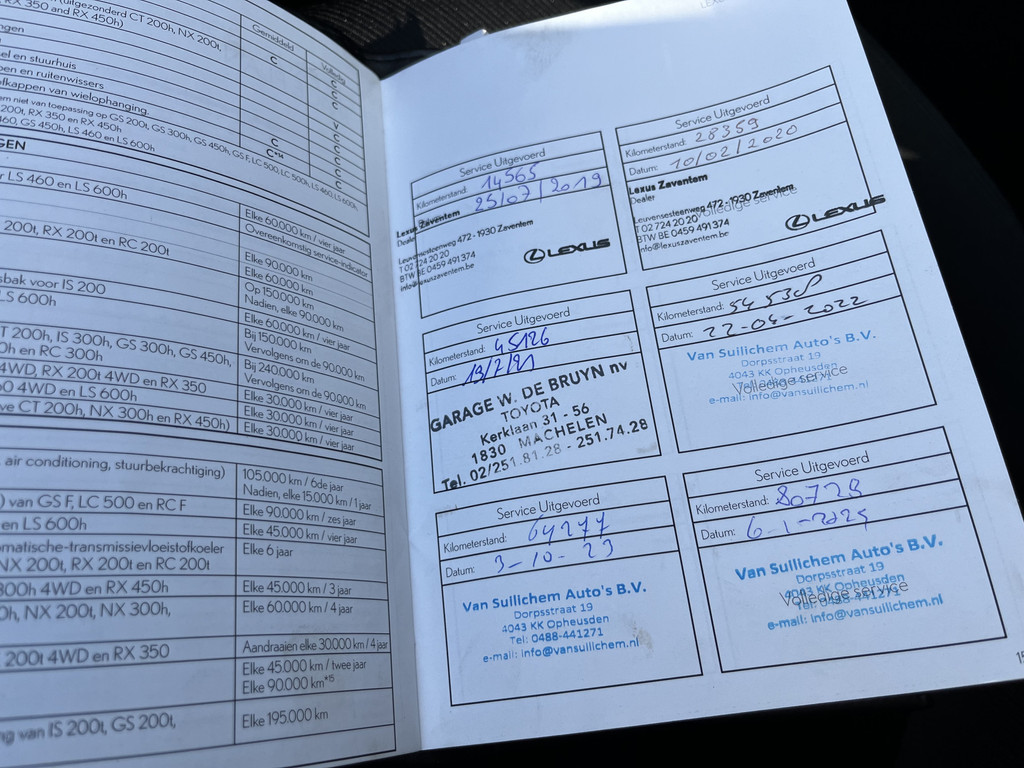 (uitgezonderd CT 200h, NX 200t,
RX 350 and RX 450h)
Gemiddeld
Volledig
C
C
C
C
el en stuurhuis
en en ruitenwissers
ofkappen van wielophanging.
em niet van toepassing op GS 200t, GS 300h, GS 450h, GS F, LC 500, LC 500h, LS 460,
200t, RX 350 en RX 450h
460, GS 450h, LS 460 en LS 600h
C
C*14
C
C
GEN
r LS 460 en LS 600h
Elke 60.000 km / vier jaar
Overeenkomstig service-indicator
200t, RX 200t en RC 200t
Elke 90.000 km
Elke 60.000 km
sbak voor IS 200
Op 150.000 km
Nadien, elke 90.000 km
LS 600h
Elke 60.000 km / vier jaar
T 200h, IS 300h, GS 300h, GS 450h,
0h en RC 300h
Bij 150.000 km
Vervolgens om de 90.000 km
4WD, RX 200t 4WD en RX 350
Bij 240.000 km
Vervolgens om de 90.000 km
0 4WD en LS 600h
Elke 30.000 km / vier jaar
ve CT 200h, NX 300h en RX 450h)
Elke 30.000 km / vier jaar
Elke 30.000 km / vier jaar
air conditioning, stuurbekrachtiging)
105.000 km / 6de jaar
Nadien, elke 15.000 km / 1 jaar
) van GS F, LC 500 en RC F
Elke 90.000 km / zes jaar
en LS 600h
Elke 45.000 km / vier jaar
omatische-transmissievloeistofkoeler
NX 200t, RX 200t en RC 200t
Elke 6 jaar
300h 4WD en RX 450h
Elke 45.000 km / 3 jaar
0h, NX 200t, NX 300h,
Elke 60.000 km / 4 jaar
200t 4WD en RX 350
Aandraaien elke 30.000 km / 4 jaar
Elke 45.000 km / twee jaar
Elke 90.000 km*15
ng van IS 200t, GS 200t,
Elke 195.000 km
Service Uitgevoerd
Kilometerstand: 14565
25/07/2019
Lexus Zaventem
Dealer
Leuvensesteenweg 472 - 1930 Zaventem
T 02 724 20 20
BTW BE 0459 491 374
info@lexuszaventem.be
LEXUS
Service Uitgevoerd
Kilometerstand: 28359
Datum: 10/02/2020
Lexus Zaventem
Dealer
Leuvensesteenweg 472 - 1930 Zaventem
Volledige service
T 02 724 20 20
BTW BE 0459 491 374
info@lexuszaventem.be
LEXUS
Service Uitgevoerd
Kilometerstand: 45126
Datum: 13/7/21
GARAGE W. DE BRUYN nv
TOYOTA
Kerklaan 31 - 56
1830 MACHELEN
Tel. 02/251.81.28 - 251.74.28
Service Uitgevoerd
Kilometerstand: 54538
Datum: 22-04-2022
Van Suilichem Auto's B.V.
Dorpsstraat 19
4043 KK Opheusden
Volledige service
e-mail: info@vansuilichem.nl
Service Uitgevoerd
Kilometerstand: 64277
Datum: 3-10-23
Van Suilichem Auto's B.V.
Dorpsstraat 19
4043 KK Opheusden
Tel: 0488-441271
e-mail: info@vansuilichem.nl
Service Uitgevoerd
Kilometerstand: 80729
Datum: 6-1-2025
Van Suilichem Auto's B.V.
Dorpsstraat 19
4043 KK Opheusden
Volledige service
Tel: 0488-441271
e-mail: info@vansuilichem.nl